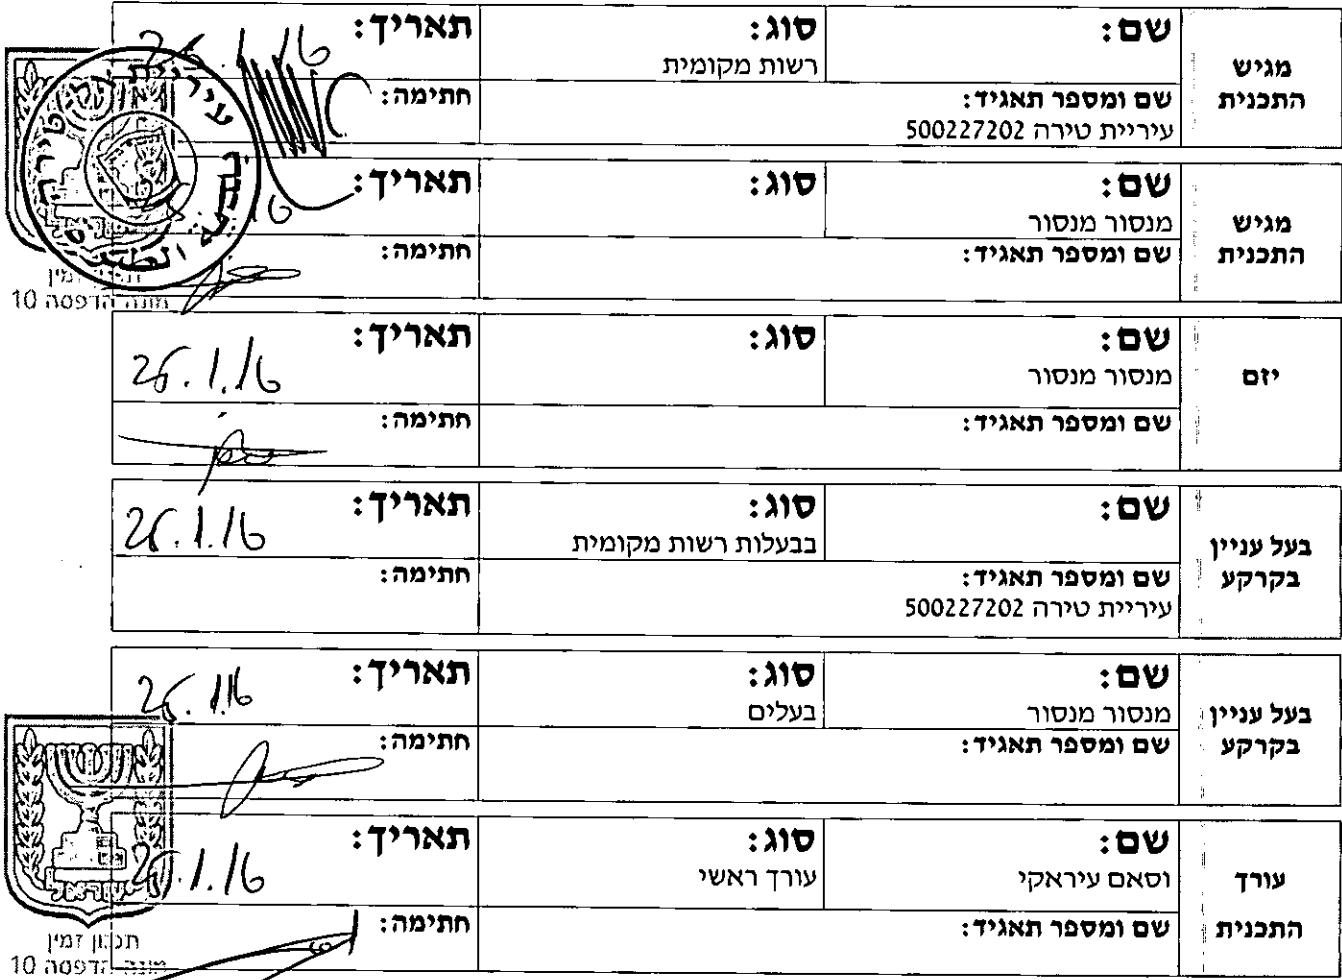 מגיש
התכנית
שם:
סוג:
רשות מקומית
תאריך:
שם ומספר תאגיד:
עיריית טירה 500227202
חתימה:
מגיש
התכנית
שם:
מנסור מנסור
סוג:
תאריך:
שם ומספר תאגיד:
חתימה:
מונה הדפסה 10
יזם
שם:
מנסור מנסור
סוג:
תאריך:
25.1.16
שם ומספר תאגיד:
חתימה:
בעל עניין
בקרקע
שם:
סוג:
בבעלות רשות מקומית
תאריך:
25.1.16
שם ומספר תאגיד:
עיריית טירה 500227202
חתימה:
בעל עניין
בקרקע
שם:
מנסור מנסור
סוג:
בעלים
תאריך:
25.1.16
שם ומספר תאגיד:
חתימה:
עורך
התכנית
שם:
וסאם עיראקי
סוג:
עורך ראשי
תאריך:
25.1.16
שם ומספר תאגיד:
חתימה:
תכנון זמין
מונה הדפסה 10